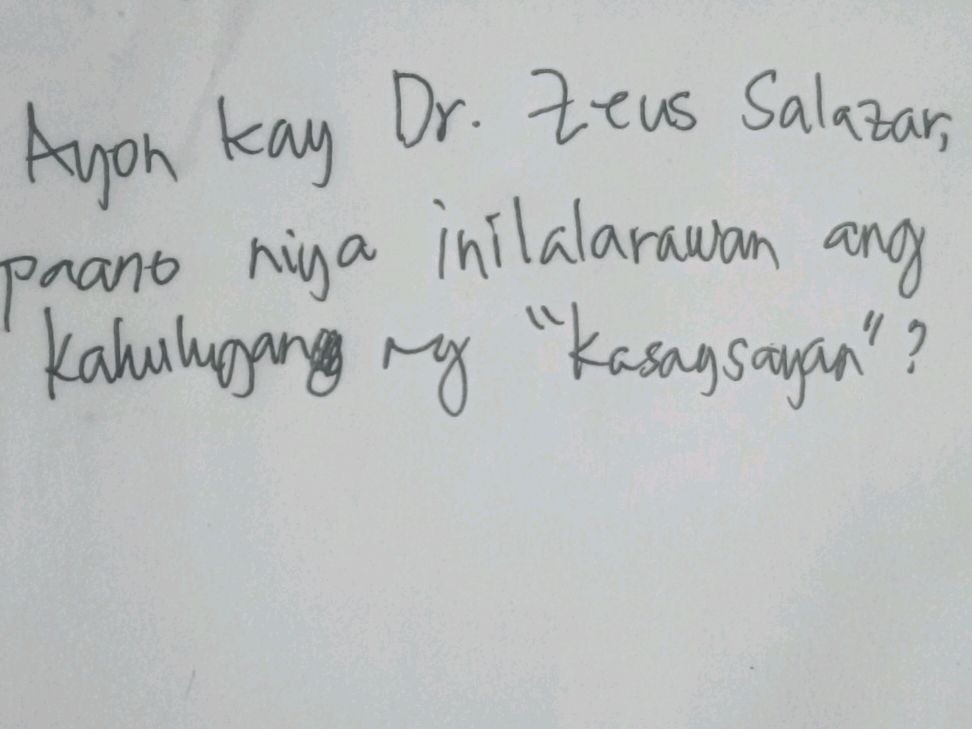 Ayon kay Dr. Zeus Salazar,
paano niya inilalarawan ang
kahulugan ng "kasaysayan"?